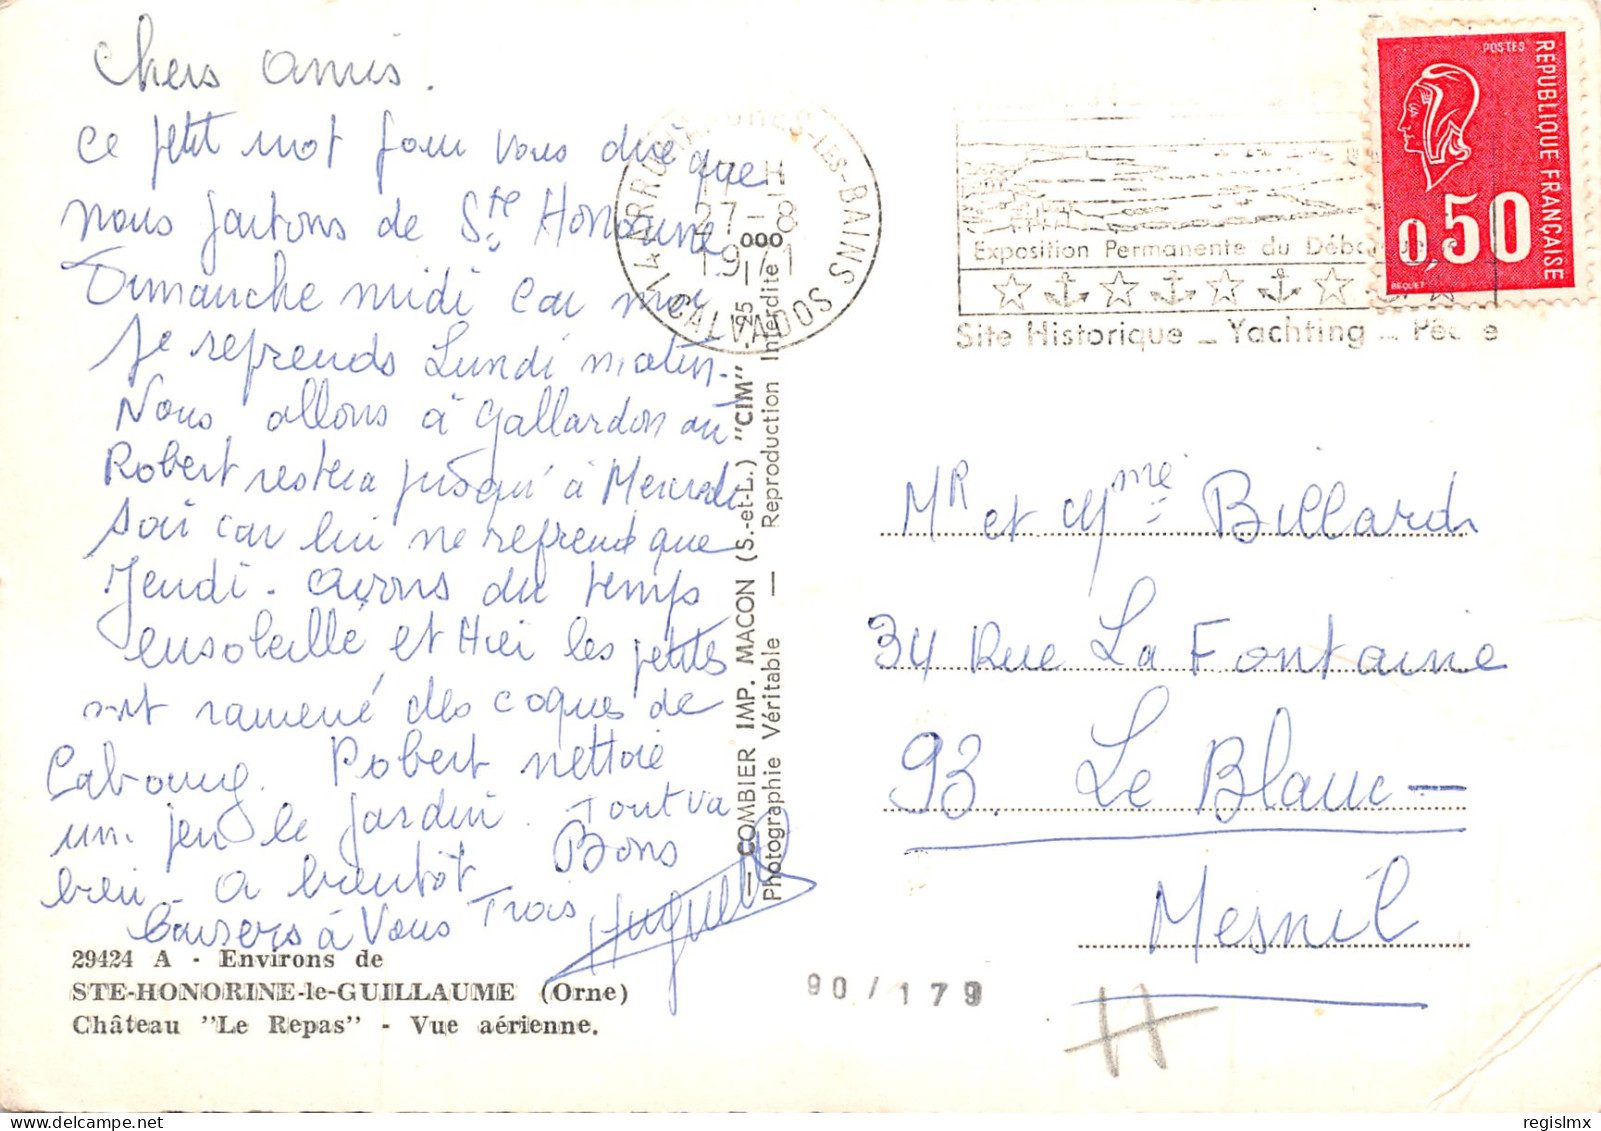 Chers Amis.
Ce petit mot pour vous dire que
nous partons de Ste Honorine
Dimanche midi car moi
je reprends Lundi matin.
Nous allons à Gallardon où
Robert restera jusqu'à Mercredi
soir car lui ne reprend que
Jeudi. avons du temps
ensoleillé et Hier les petites
ont ramené des coques de
Cabourg. Robert nettoie
un peu le jardin. Tout va
bien. A bientôt Bons
baisers à Vous Trois
29424 A - Environs de
STE-HONORINE-le-GUILLAUME (Orne)
Château "Le Repas" - Vue aérienne.
— COMBIER IMP. MACON (S.-et-L.) "CIM"
Photographie Véritable — Reproduction Interdite
14 ARROMANCHES-LES-BAINS
17 H
27-8
1971
CALVADOS
Exposition Permanente du
Site Historique - Yachting - Pêche
POSTES
REPUBLIQUE FRANÇAISE
0,50
BEQUET
MR et Mme Billard
34 Rue La Fontaine
93. Le Blanc-
Mesnil
90/179
H
regislmx